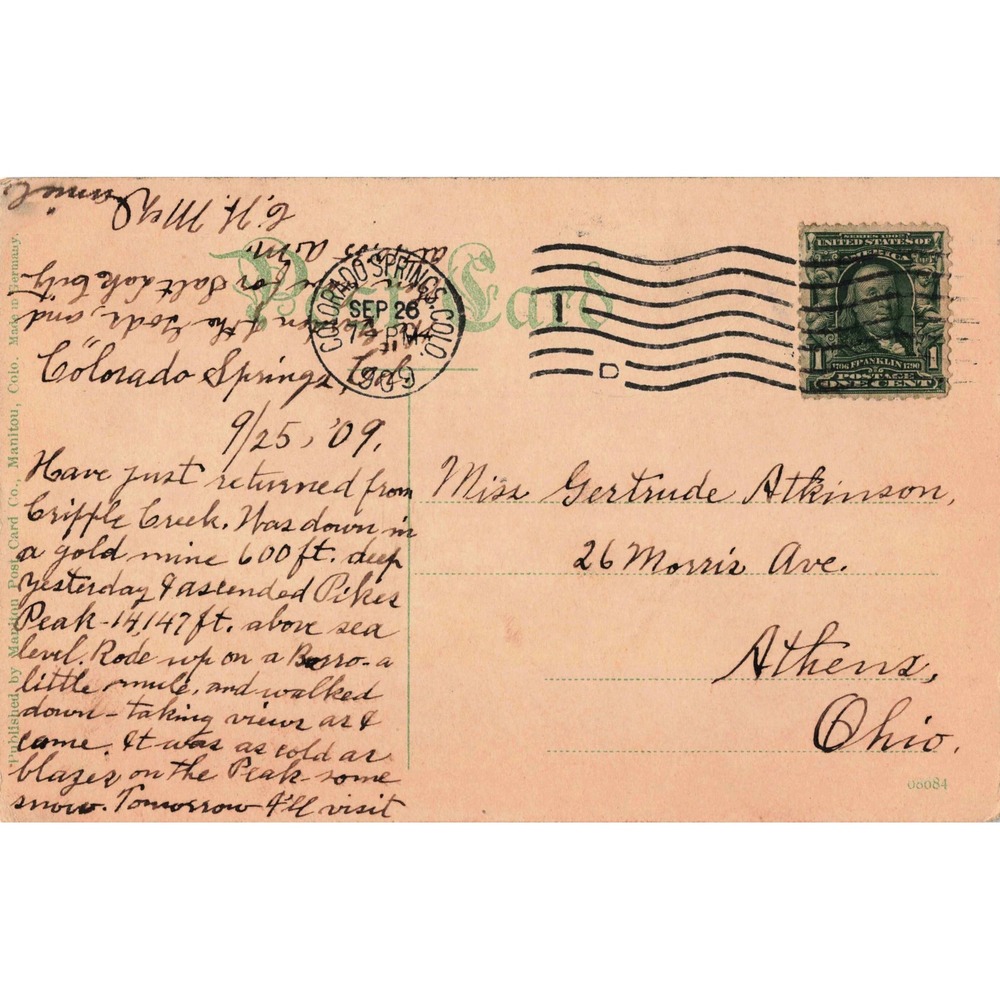 Post Card
Colorado Springs, Col.
9/25, '09.
Have just returned from
Cripple Creek. Was down in
a gold mine 600 ft. deep
yesterday & ascended Pikes
Peak - 14,147 ft. above sea
level. Rode up on a Burro - a
little mule, and walked
down - taking views as I
came. It was as cold as
blazes on the Peak - some
snow. Tomorrow I'll visit
Garden of the Gods, and
leave for Salt Lake City
at A.M.
C. H.
COLORADO SPRINGS, COLO.
SEP 26
7 PM
1909
D
SERIES 1902
UNITED STATES OF
AMERICA
1706 FRANKLIN 1790
POSTAGE
1 ONE CENT 1
Miss Gertrude Atkinson,
26 Morris Ave.
Athens,
Ohio.
Published by Manitou Post Card Co., Manitou, Colo. Made in Germany.
08684